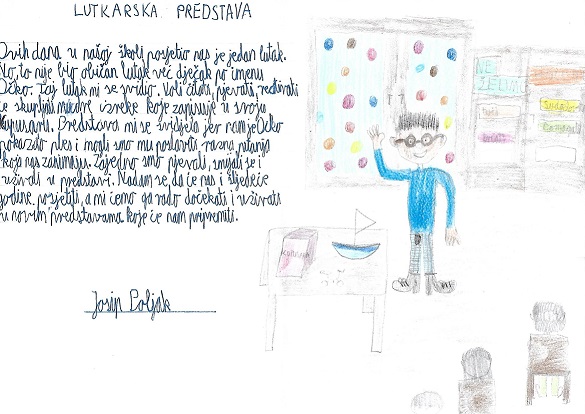 LUTKARSKA PREDSTAVA
Ovih dana u našoj školi posjetio nas je jedan lutak.
No, to nije bio običan lutak već dječak po imenu
Očko. Taj lutak mi se svidio. Voli čitati, pjevati, recitirati
te skupljati mudre izreke koje zapisuje u svoju
kupusaru. Predstava mi se svidjela jer nam je Očko
pokazao ples i mogli smo mu postaviti razna pitanja
koja nas zanimaju. Zajedno smo pjevali, smijali se i
uživali u predstavi. Nadam se da će nas i sljedeće
godine posjetiti, a mi ćemo ga rado dočekati i uživati
u novim predstavama koje će nam pripremiti.
Josip Poljak